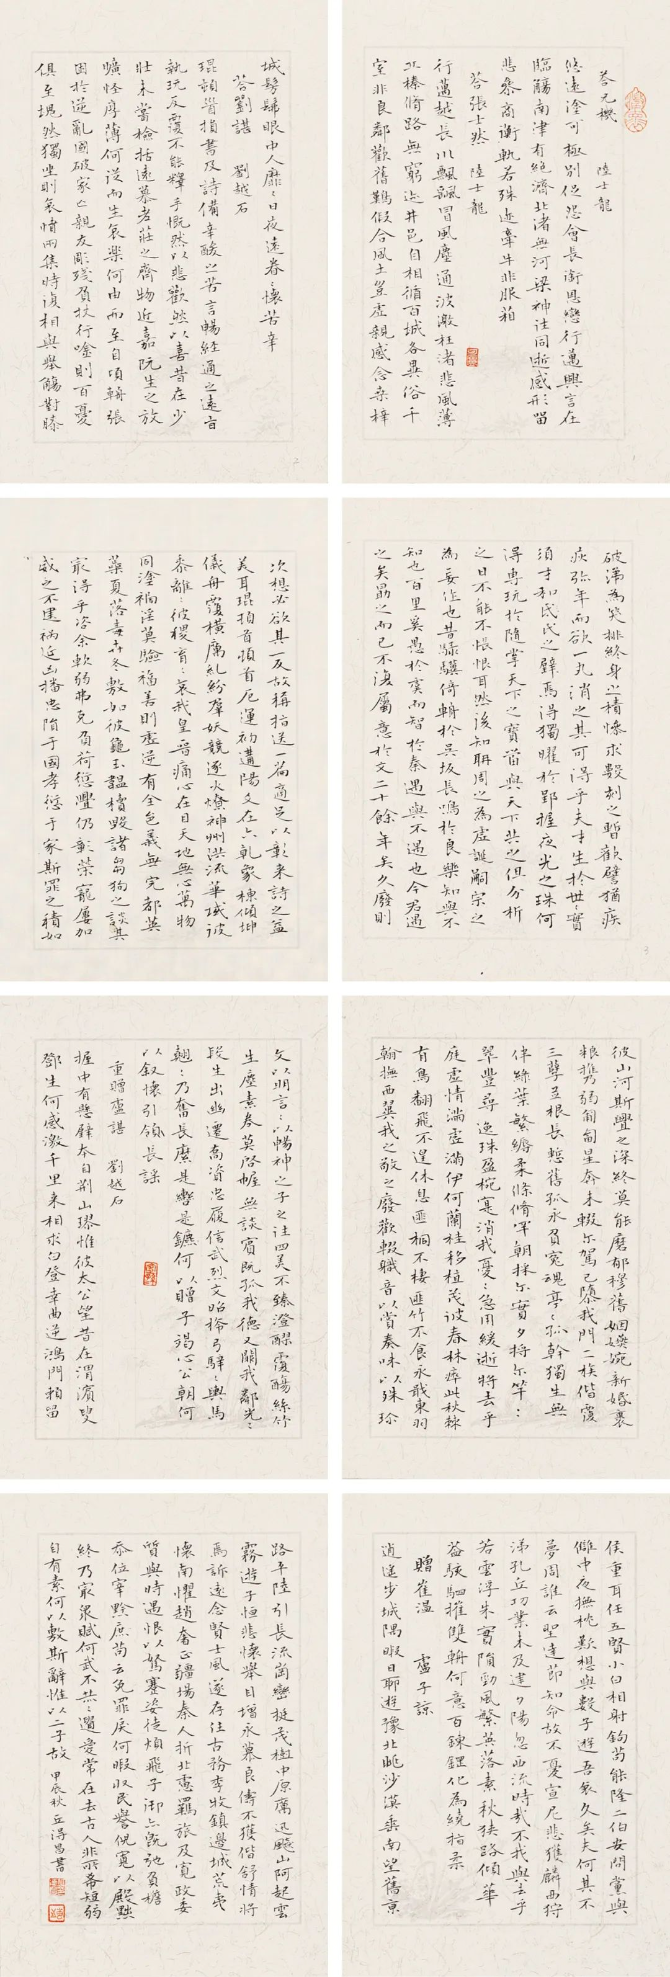 荅兄機 陸士龍
悠遠塗可極別促怨會長銜恩戀行邁興言在
臨觴南津有絕濟北渚無河梁神往同逝感形留
悲參商衡軌若殊迹牽牛非服箱
荅張士然 陸士龍
行邁越長川飄颻冒風塵通波激枉渚悲風薄
丘榛脩路無窮迹井邑自相循百城各異俗千
室非良鄰歡舊難假合風土豈虛親感念桑梓
城髣髴眼中人靡〻日夜遠眷〻懷苦辛
荅劉諶 劉越石
琨頓首損書及詩備辛酸之苦言暢經通之遠旨
執玩反覆不能釋手慨然以悲歡然以喜昔在少
壯未嘗檢括遠慕老莊之齊物近嘉阮生之放
曠怪厚薄何從而生哀樂何由而至自頃輈張
困於逆亂國破家亡親友彫殘負杖行唫則百憂
俱至塊然獨坐則哀憤兩集時復相與舉觴對膝
破涕為笑排終身之積慘求數刻之暫歡譬猶疾
疢弥年而欲一丸消之其可得乎夫才生於世〻實
須才和氏氏之璧焉得獨曜於郢握夜光之珠何
得專玩於隨掌天下之寶當與天下共之但分析
之日不能不悵恨耳然後知聃周之為虛誕嗣宗之
為妄作也昔騄驥倚輈於吳坂長鳴於良樂知與不
知也百里奚愚於虞而智於秦遇與不遇也今君遇
之矣勗之而已不復屬意於文二十餘年矣久廢則
次想必欲其一反故稱指送一篇適足以彰來詩之益
美耳琨頓首頓首厄運初遘陽爻在六乾象棟傾坤
儀舟覆橫厲糺紛羣妖競逐火燎神州洪流華域彼
黍離〻彼稷育〻哀我皇晉痛心在目天地無心萬物
同塗禍淫莫驗福善則虛逆有全邑義無完都英
蘂夏落毒卉冬敷如彼龜玉韞櫝毀諸芻狗之談其
最得乎咨余軟弱弗克負荷愆釁仍彰榮寵屢加
威之不建禍延凶播忠隕于國孝愆于家斯罪之積如
彼山河斯釁之深終莫能磨郁穆舊姻嬿婉新婚裹
粮携弱匍匐星奔未輟尔駕已隳我門二族偕覆
三孽並根長慙舊孤永負冤魂亭〻孤幹獨生無
伴綠葉繁縟柔條脩罕朝採尔實夕捋尔竿〻
翠豐尋逸珠盈椀寔消我憂〻急用緩逝將去乎
庭虛情滿虛滿伊何蘭桂移植茂彼春林瘁此秋棘
有鳥翻飛不遑休息匪桐不棲匪竹不食永戢東羽
翰撫西翼我之敬之廢歡輟職音以賞奏味以殊珍
文以明言〻以暢神之子之往四美不臻澄醪覆觴絲竹
生塵素卷莫啓幄無談賓既孤我德又闕我鄰光〻
段生出幽遷喬資忠履信武烈文昭旍弓騂〻輿馬
翹〻乃奮長縻是轡是鑣何以贈子竭心公朝何
以叙懷引領長謠
重贈盧諶 劉越石
握中有懸璧本自荆山璆惟彼太公望昔在渭濱叟
鄧生何感激千里來相求白登幸曲逆鴻門賴留
侯重耳任五賢小白相射鉤苟能隆二伯安問黨與
讎中夜撫枕歎想與數子遊吾衰久矣夫何其不
夢周誰云聖達節知命故不憂宣尼悲獲麟西狩
涕孔丘功業未及建夕陽忽西流時哉不我與去乎
若雲浮朱實隕勁風繁英落素秋狹路傾華
蓋駭駟摧雙輈何意百鍊鋼化為繞指柔
贈崔溫 盧子諒
逍遙步城隅暇日聊遊豫北眺沙漠垂南望舊京
路平陸引長流崗巒挺茂樹中原厲迅飇山阿起雲
霧遊子恒悲懷舉目增永慕良儔不獲偕舒情將
焉訴遠念賢士風遂存往古務李牧鎮邊城荒夷
懷南懼趙奢正疆埸秦人折北慮羈旅及寬政委
質與時遇恨以駑蹇姿徒煩飛子御亦既弛負檐
忝位宰黔庶苟云免罪戾何暇收民譽倪寬以殿黜
終乃最衆賦何武不赫〻遺愛常在去古人非所希短弱
自有素何以敷斯辭惟以二子故 甲辰秋 丘得昌書